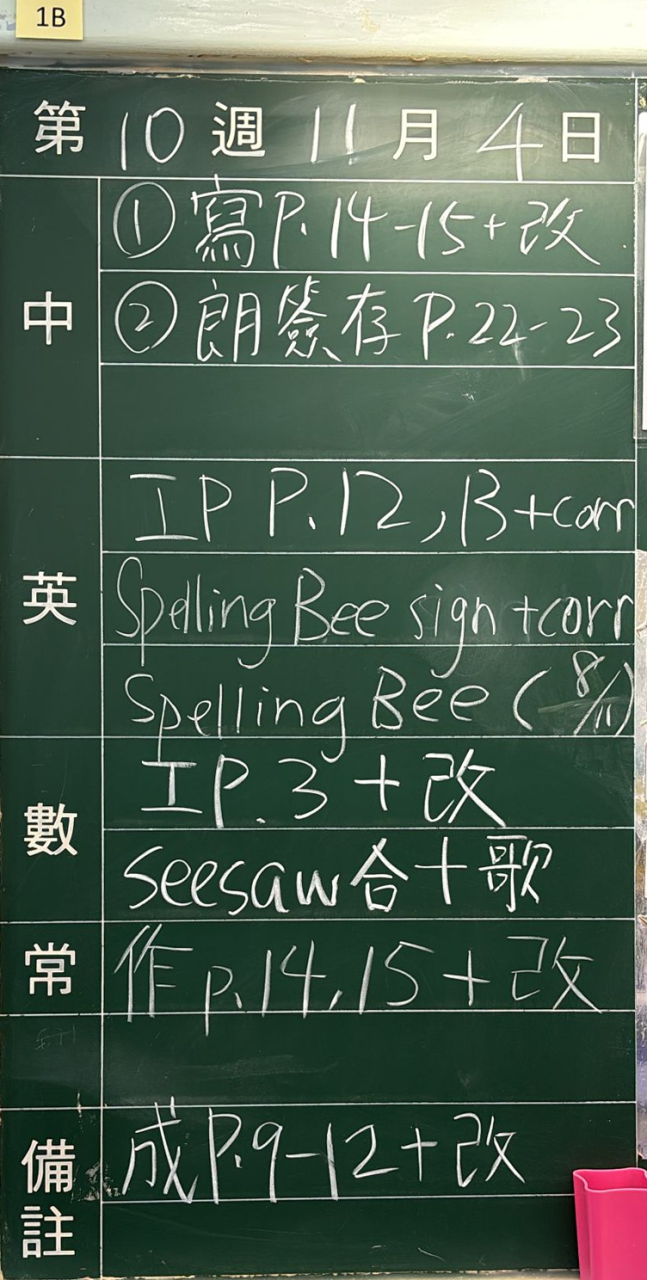 1B
第10週11月4日
中
①寫P.14-15+改
②朗簽存P.22-23
英
工P P.12,B+corr
Spelling Bee sign+corr
Spelling Bee (8/11)
數
工P.3+改
seesaw合十歌
常
作p.14,15+改
備註
成P.9-12+改